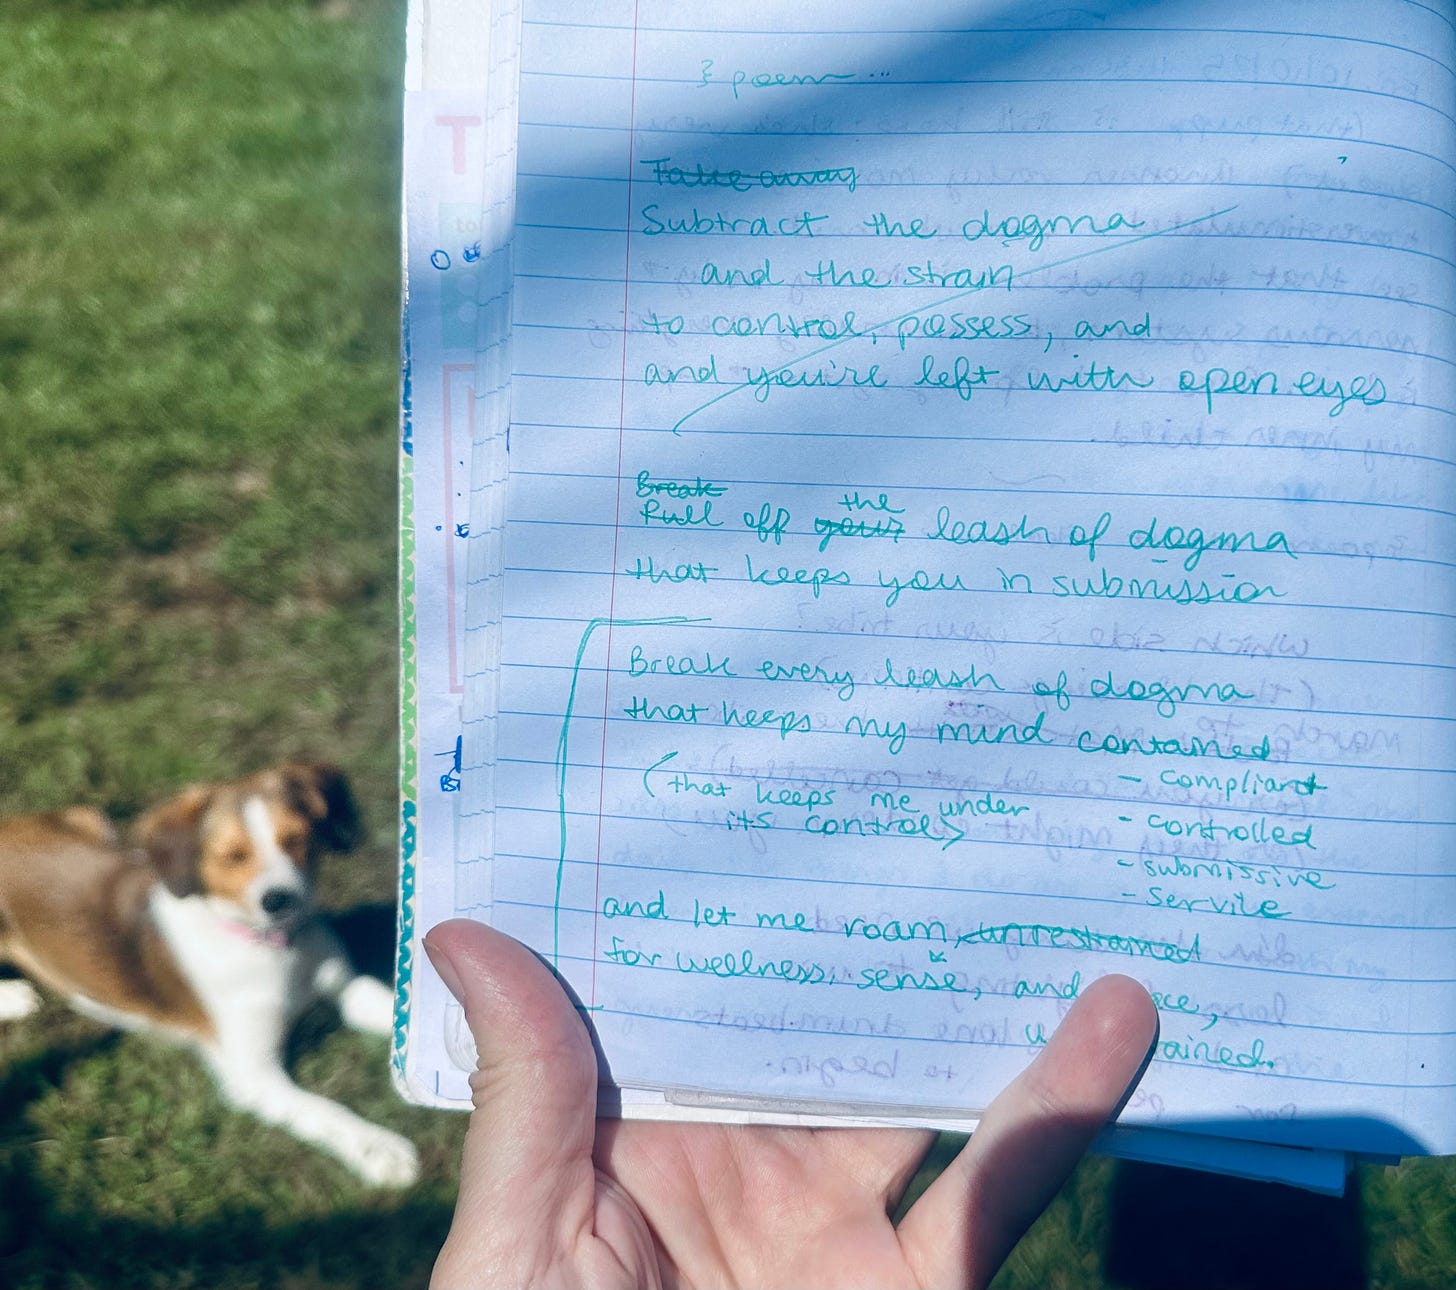 & poem...
Take away
Subtract the dogma
and the strain
to control, possess, and
and you're left with open eyes
Break
the
Pull off your leash of dogma
that keeps you in submission
Break every leash of dogma
that keeps my mind contained
- compliant
(that keeps me under
its control)
- controlled
- submissive
- servile
and let me roam, unrestrained
for wellness, sense, and
T
to